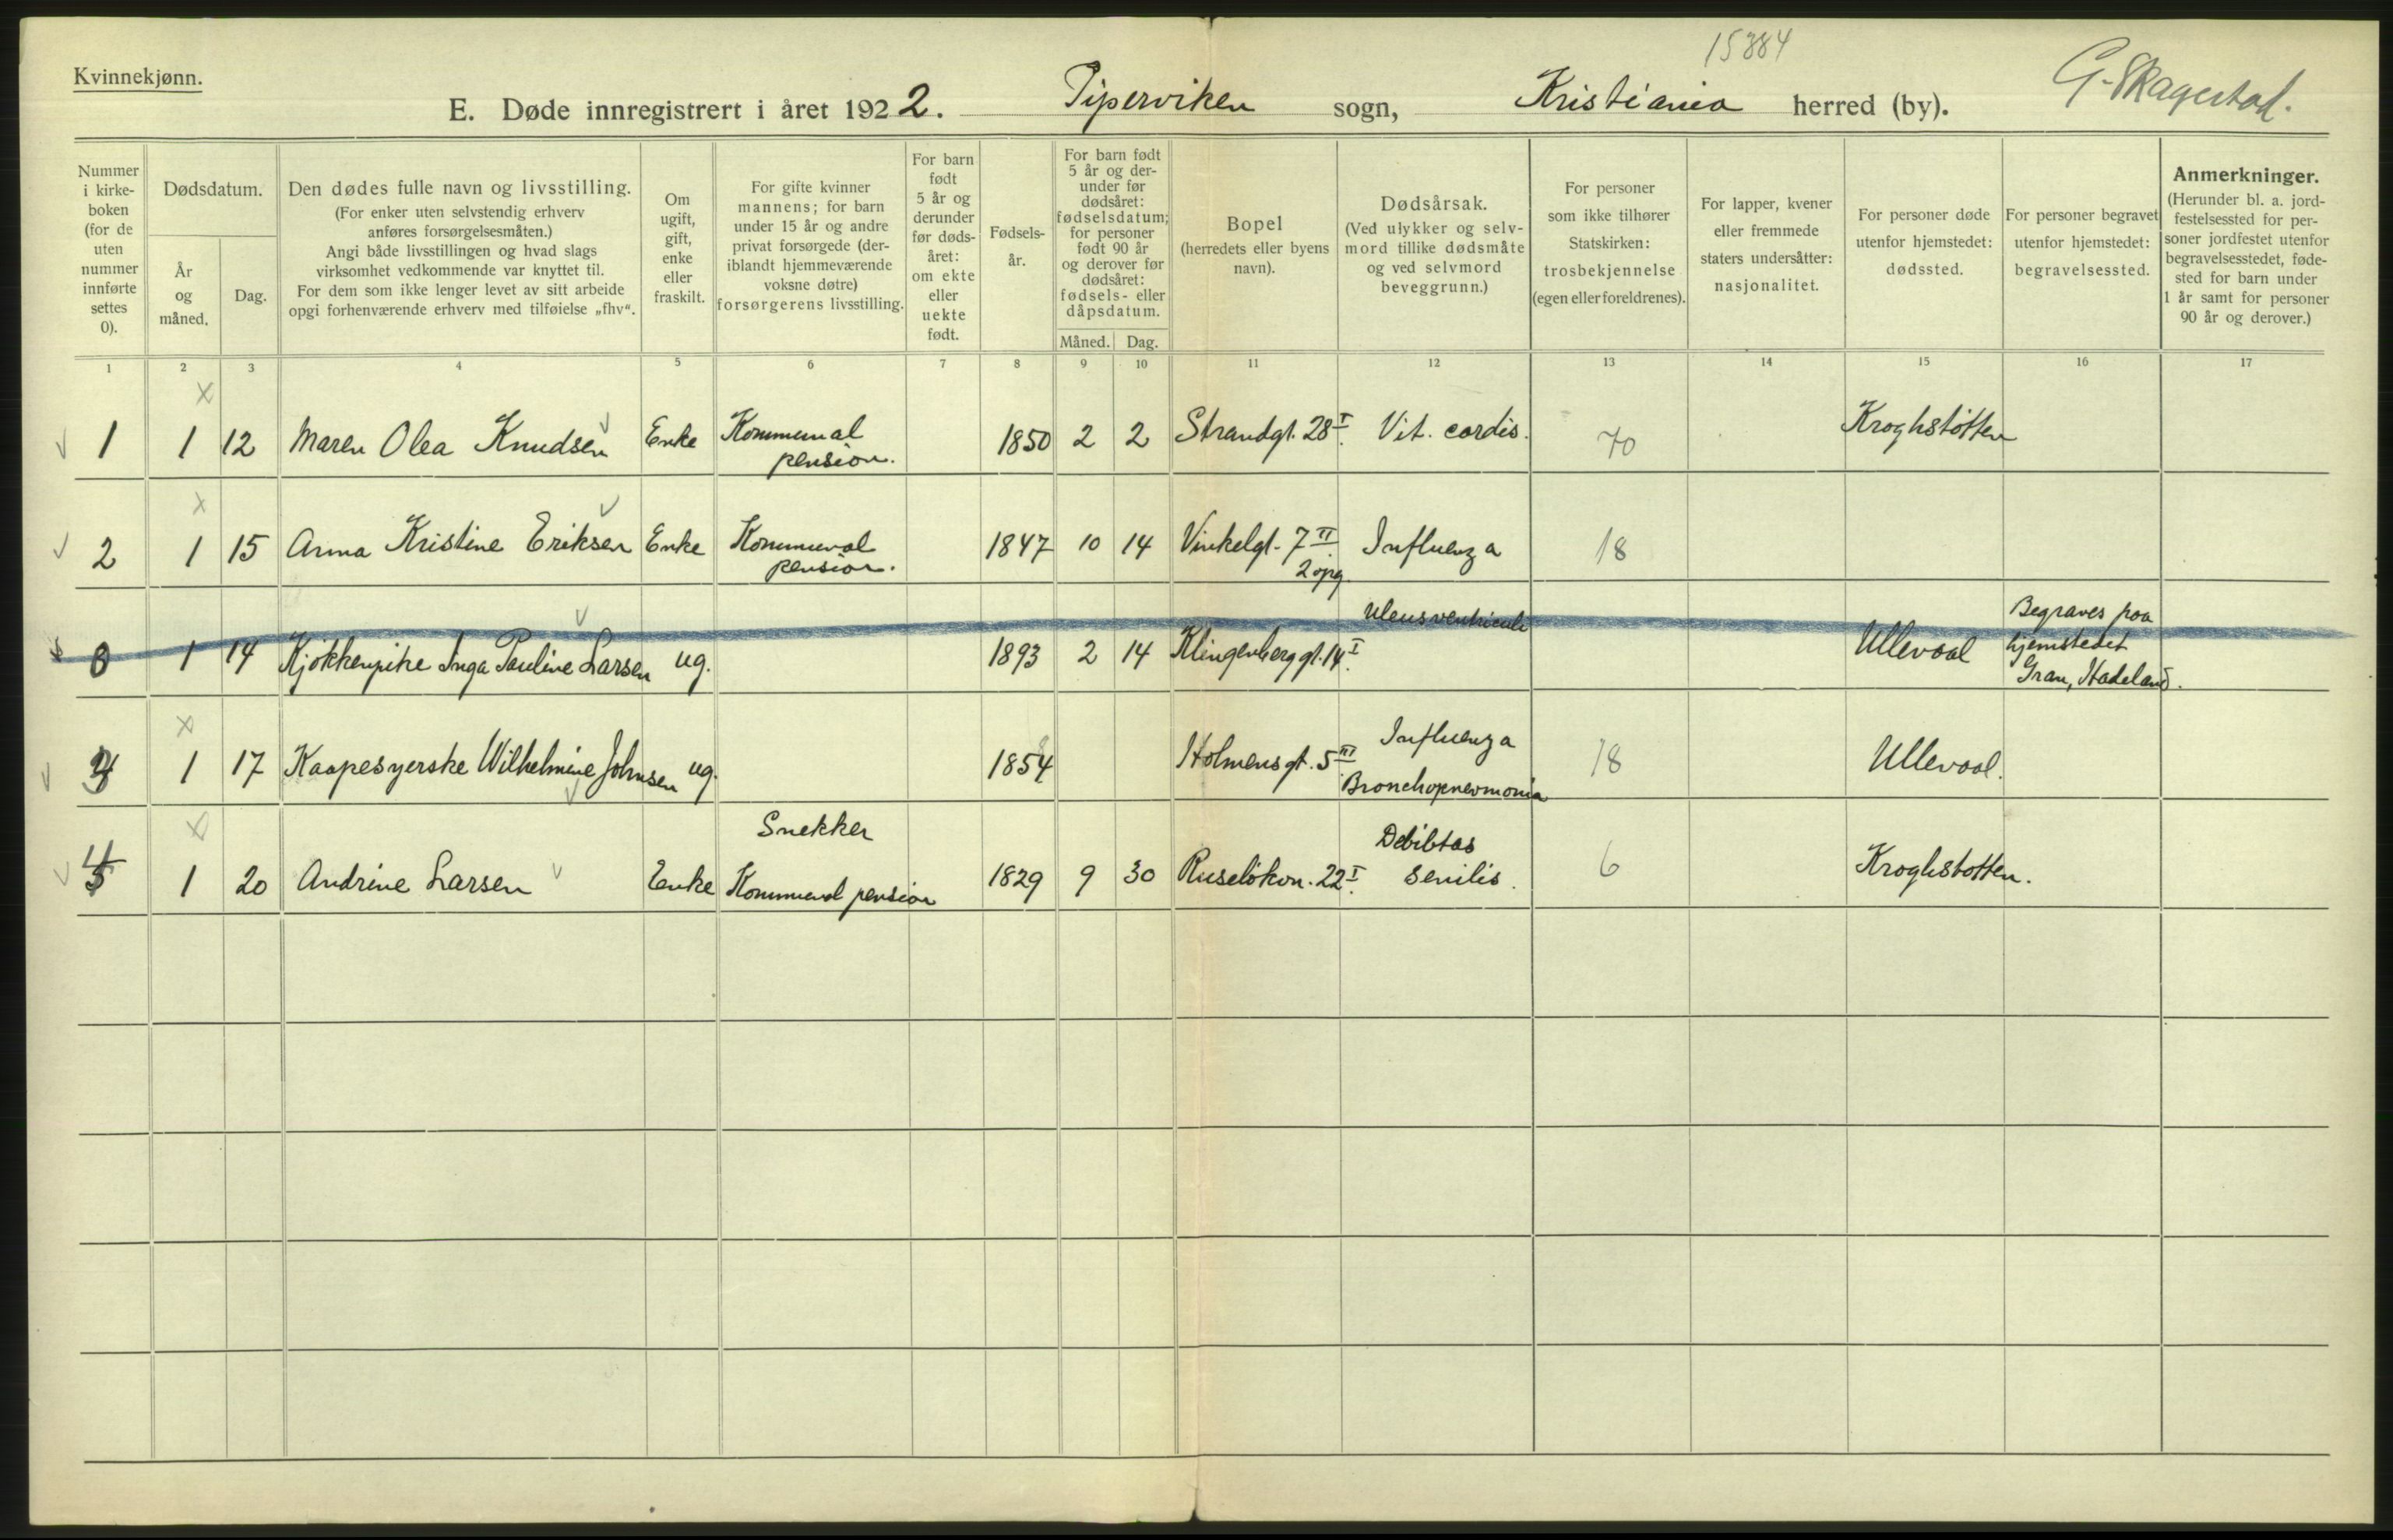 15884
Kvinnekjønn.
G. Skagestad.
E. Døde innregistrert i året 1922. Piperviken sogn, Kristiania herred (by).
Nummer i kirke-boken (for de uten nummer innførte settes 0).
Dødsdatum.
År og måned.
Dag.
Den dødes fulle navn og livsstilling.
(For enker uten selvstendig erhverv anføres forsørgelsesmåten.)
Angi både livsstillingen og hvad slags virksomhet vedkommende var knyttet til.
For dem som ikke lenger levet av sitt arbeide opgi forhenværende erhverv med tilføielse „fhv“.
Om ugift, gift, enke eller fraskilt.
For gifte kvinner mannens; for barn under 15 år og andre privat forsørgede (deriblandt hjemmeværende voksne døtre) forsørgerens livsstilling.
For barn født 5 år og derunder før døds-året: om ekte eller uekte født.
Fødsels-år.
For barn født 5 år og der-under før dødsåret: fødselsdatum; for personer født 90 år og derover før dødsåret: fødsels- eller dåpsdatum.
Måned. Dag.
Bopel (herredets eller byens navn).
Dødsårsak.
(Ved ulykker og selv-mord tillike dødsmåte og ved selvmord beveggrunn.)
For personer som ikke tilhører Statskirken: trosbekjennelse (egen eller foreldrenes).
For lapper, kvener eller fremmede staters undersåtter: nasjonalitet.
For personer døde utenfor hjemstedet: dødssted.
For personer begravet utenfor hjemstedet: begravelsessted.
Anmerkninger.
(Herunder bl. a. jord-festelsessted for per-soner jordfestet utenfor begravelsesstedet, føde-sted for barn under 1 år samt for personer 90 år og derover.)
1 2 3 4 5 6 7 8 9 10 11 12 13 14 15 16 17
1 1 12 Maren Olea Knudsen Enke Kommunal pension. 1850 2 2 Strandgt. 28 I. Vit. cordis. 70 Kroghstøtten
2 1 15 Anna Kristine Eriksen Enke Kommunal pension. 1847 10 14 Vinkelgt. 7 II. 2 opg. Influenza 18
0 1 14 Kjøkkenpike Inga Pauline Larsen ug. 1893 2 14 Klingenberggt. 14 I. Ulcus ventriculi Ullevaal Begraves paa hjemstedet Gran, Hadeland.
3 1 17 Kaapesyerske Wilhelmine Johnsen ug. 1854 Holmensgt. 5 III. Influenza Bronchopneumonia 18 Ullevaal.
4 1 20 Andrine Larsen Enke Snekker Kommunal pension 1829 9 30 Ruseløkvn. 22 I. Debilitas senilis. 6 Kroghstøtten.